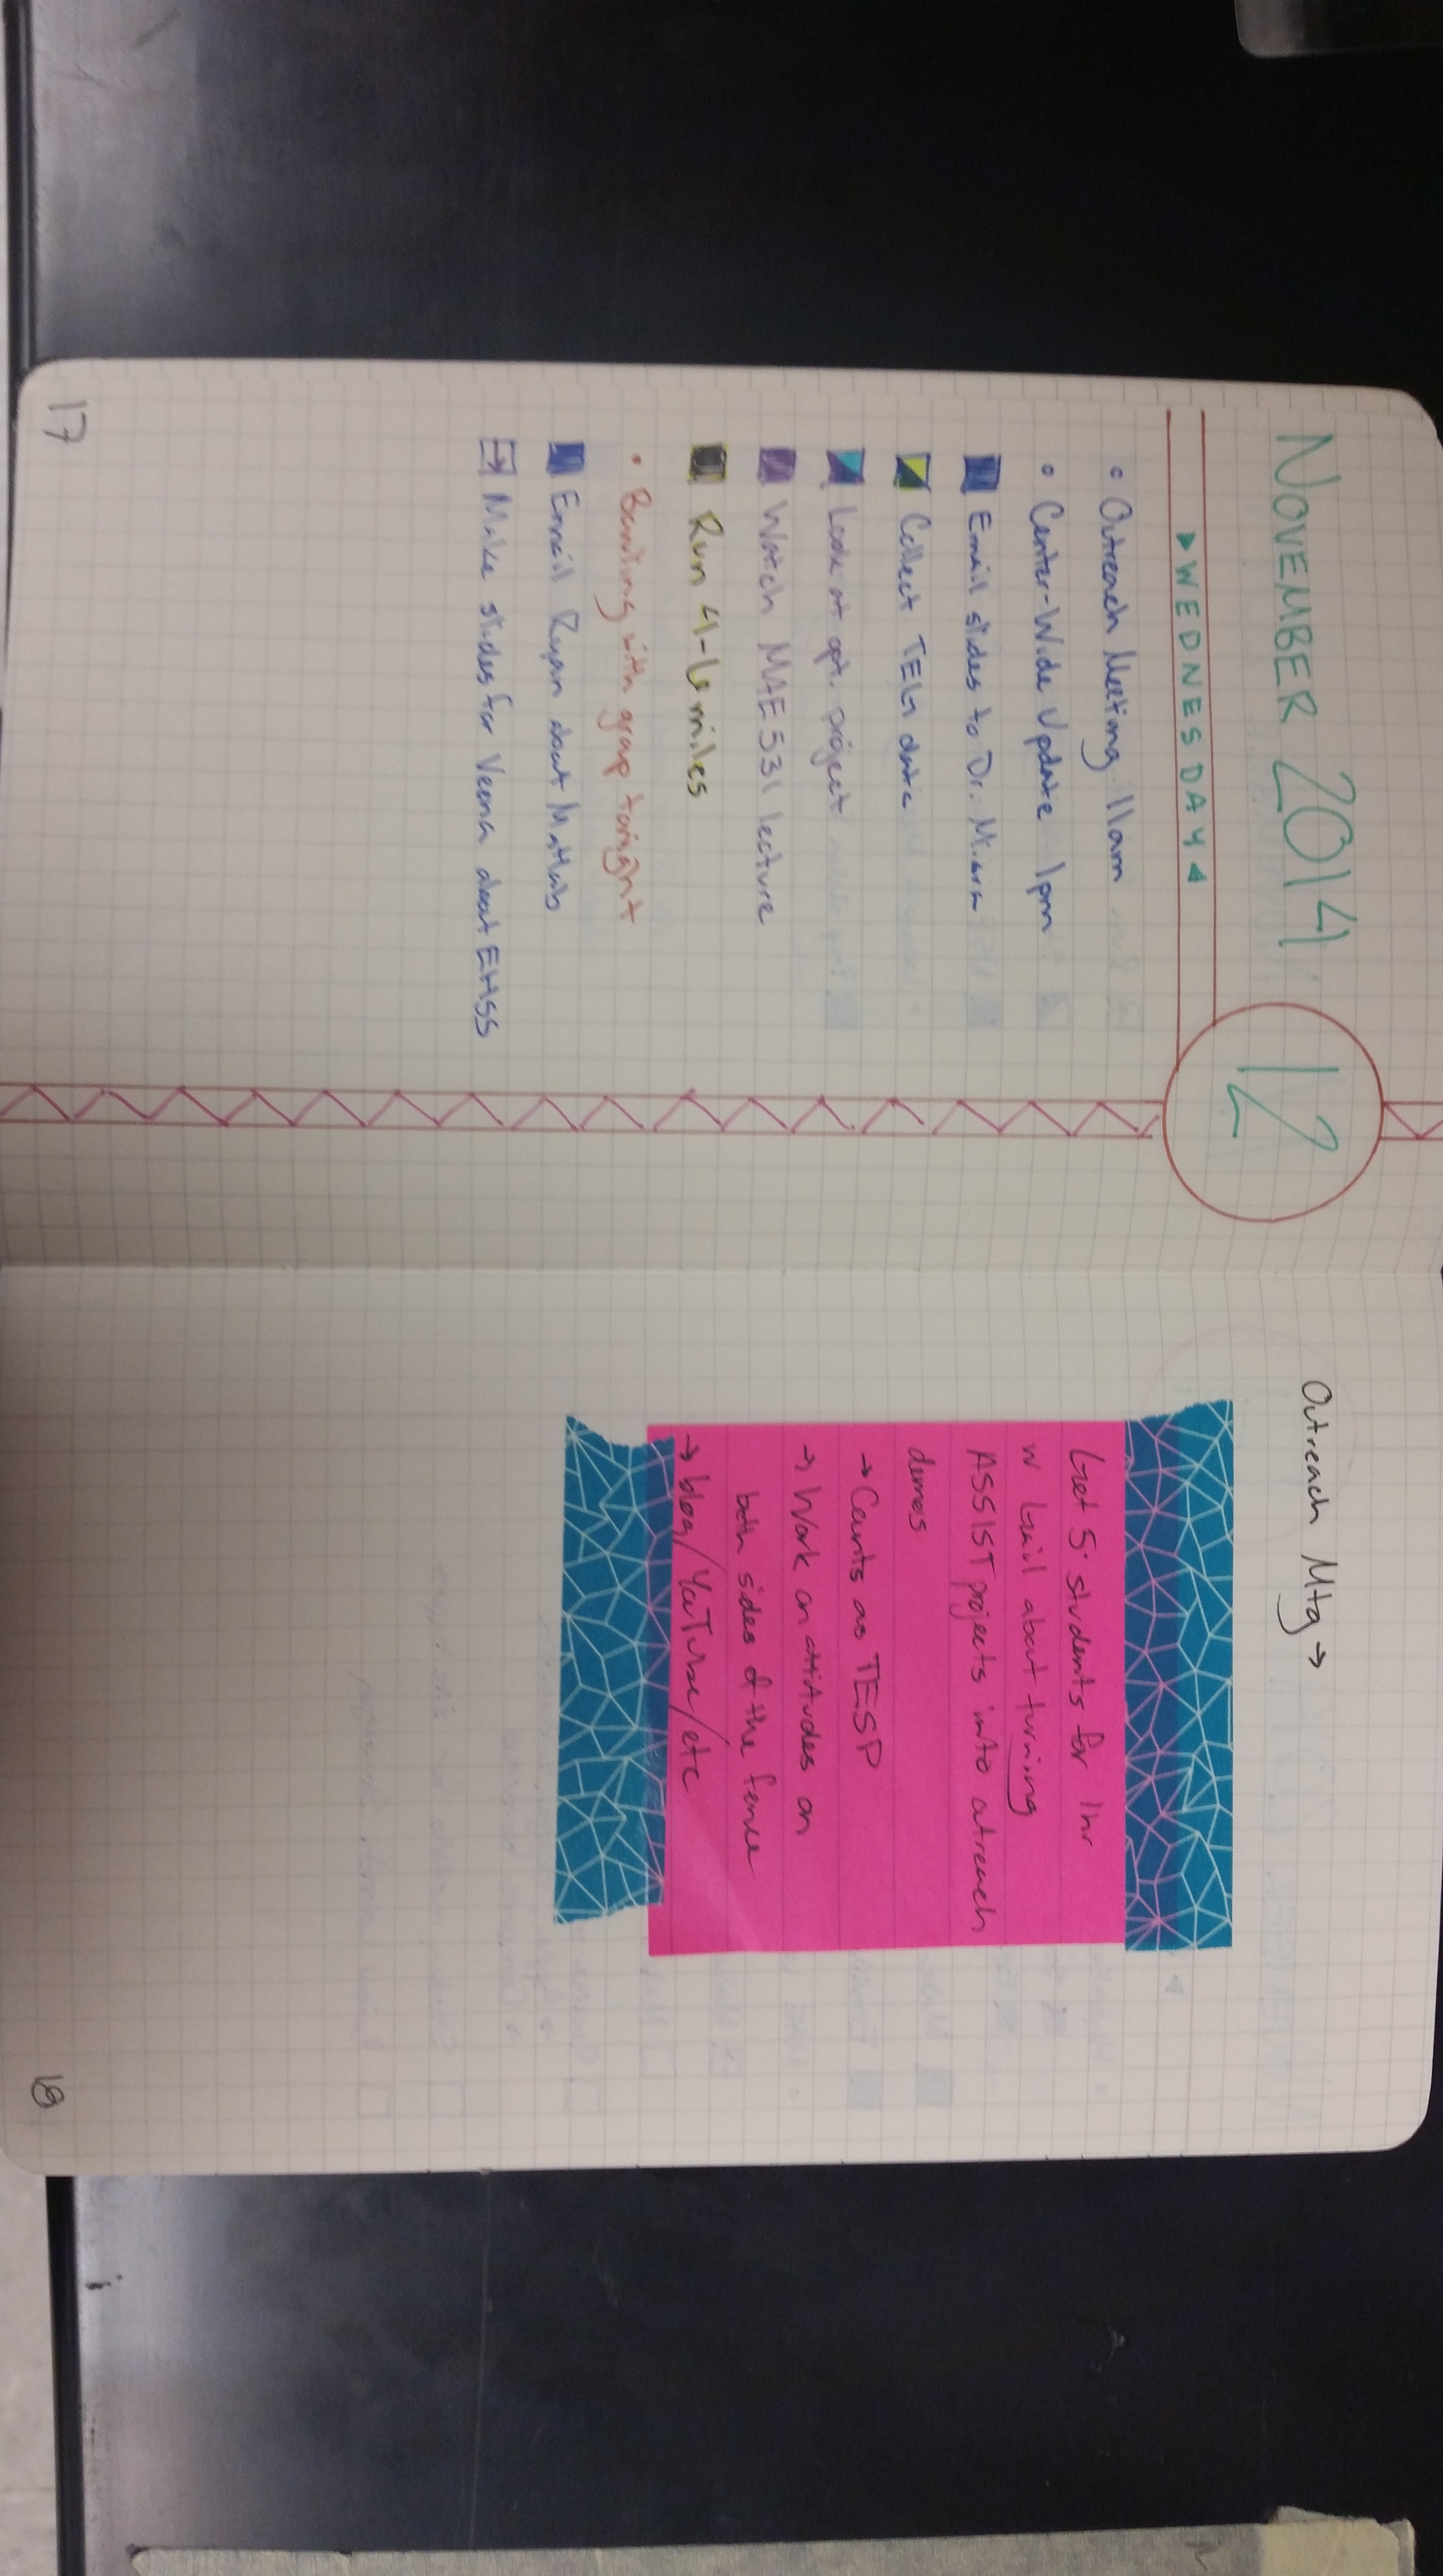 NOVEMBER 2014
12
WEDNESDAY
Outreach Meeting 11am
Center-Wide Update 1pm
Email slides to Dr. Misra
Collect TEG data
Look at opt. project
Watch MAE 531 lecture
Run 4-6 miles
Bowling with group tonight
Email Ryan about Matlab
Make slides for Veena about EHSS
17
Outreach Mtg →
Get 5 students for 1hr
w/ Gail about turning
ASSIST projects into outreach
demos
→ Counts as TESP
→ Work on attitudes on
both sides of the fence
→ blog/YouTube/etc
18